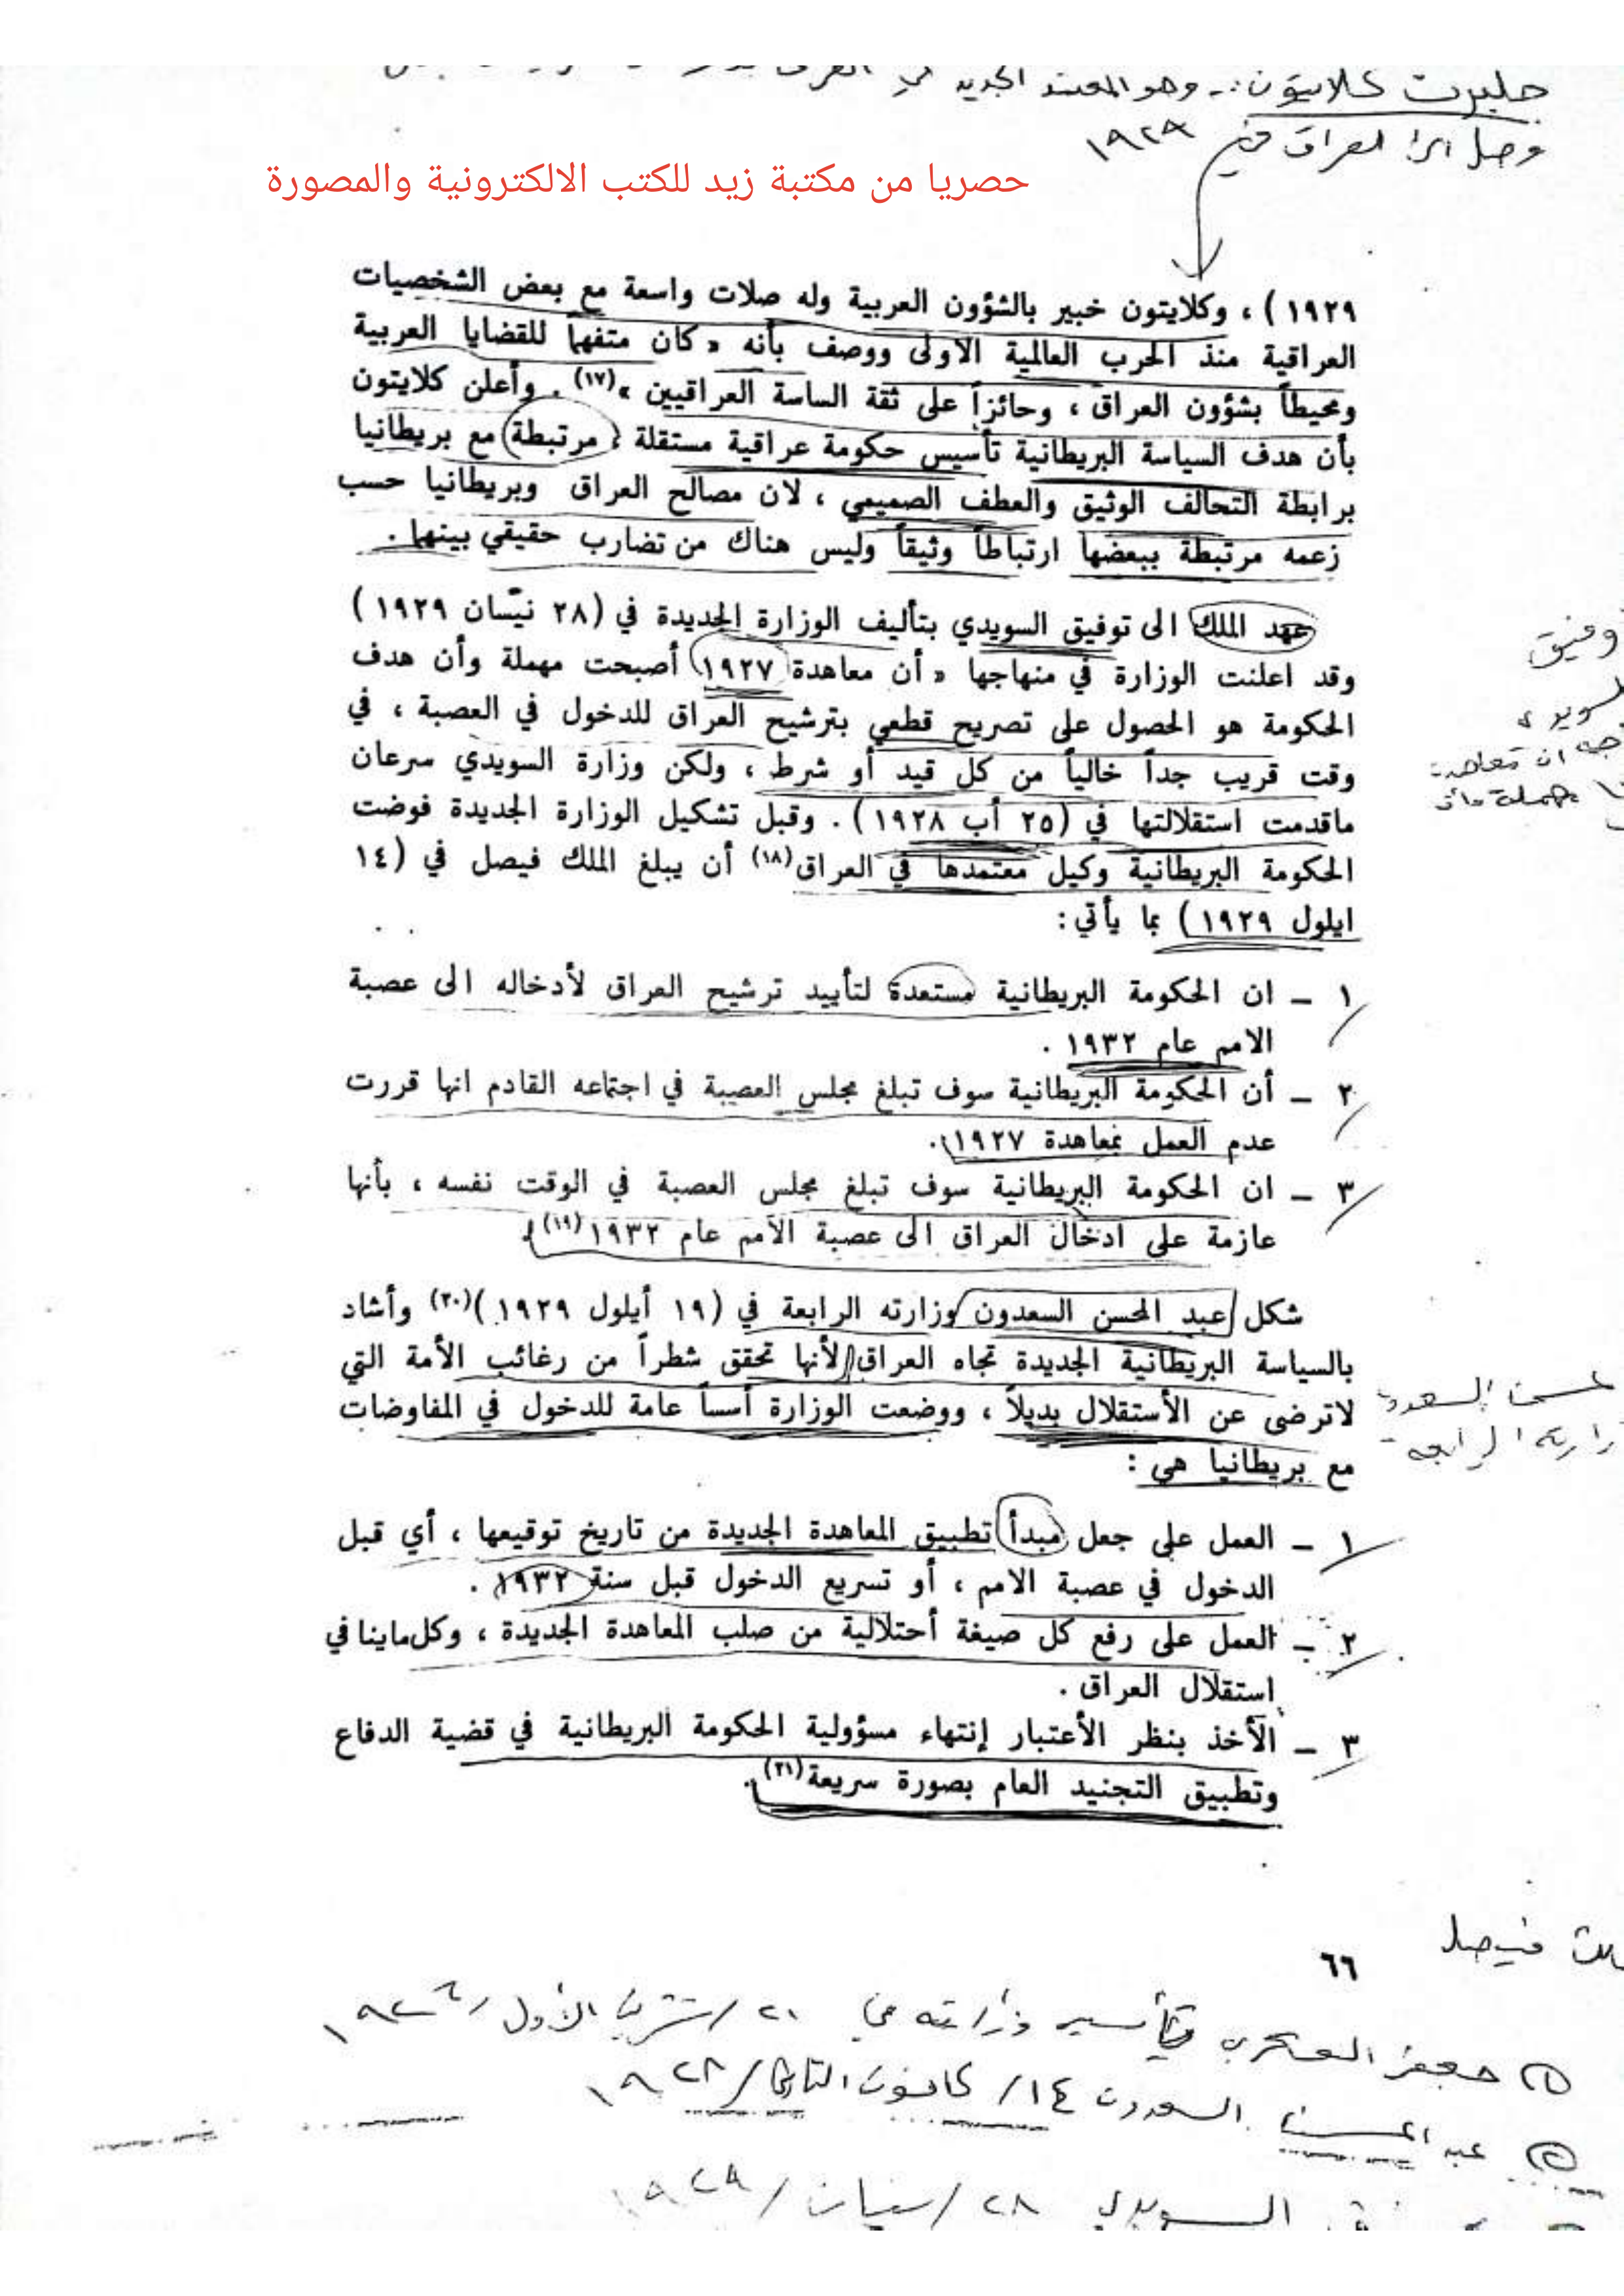 جلبرت كلايتون :- وهو المعتمد الجديد في
وصل الى العراق في ١٩٢٩
حصريا من مكتبة زيد للكتب الالكترونية والمصورة
١٩٢٩ ) ، وكلايتون خبير بالشؤون العربية وله صلات واسعة مع بعض الشخصيات
العراقية منذ الحرب العالمية الاولى ووصف بأنه « كان متفهماً للقضايا العربية
ومحيطاً بشؤون العراق ، وحائزاً على ثقة الساسة العراقيين »(١٧) . وأعلن كلايتون
بأن هدف السياسة البريطانية تأسيس حكومة عراقية مستقلة ، مرتبطة مع بريطانيا
برابطة التحالف الوثيق والعطف الصميمي ، لان مصالح العراق وبريطانيا حسب
زعمه مرتبطة ببعضها ارتباطاً وثيقاً وليس هناك من تضارب حقيقي بينهما .
عهد الملك الى توفيق السويدي بتأليف الوزارة الجديدة في (٢٨ نيسان ١٩٢٩ )
وقد اعلنت الوزارة في منهاجها « أن معاهدة ١٩٢٧ أصبحت مهملة وأن هدف
الحكومة هو الحصول على تصريح قطعي بترشيح العراق للدخول في العصبة ، في
وقت قريب جداً خالياً من كل قيد أو شرط ، ولكن وزارة السويدي سرعان
ماقدمت استقلالتها في (٢٥ أب ١٩٢٨ ) . وقبل تشكيل الوزارة الجديدة فوضت
الحكومة البريطانية وكيل معتمدها في العراق(١٨) أن يبلغ الملك فيصل في (١٤
ايلول ١٩٢٩ ) بما يأتي :
١ ـ ان الحكومة البريطانية مستعدة لتأييد ترشيح العراق لأدخاله الى عصبة
الامم عام ١٩٣٢ .
٢ ـ أن الحكومة البريطانية سوف تبلغ مجلس العصبة في اجتماعه القادم انها قررت
عدم العمل بمعاهدة ١٩٢٧ .
٣ ـ ان الحكومة البريطانية سوف تبلغ مجلس العصبة في الوقت نفسه ، بأنها
عازمة على ادخال العراق الى عصبة الامم عام ١٩٣٢(١٩) .
شكل عبد المحسن السعدون وزارته الرابعة في (١٩ أيلول ١٩٢٩ )(٢٠) وأشاد
بالسياسة البريطانية الجديدة تجاه العراق لأنها تحقق شطراً من رغائب الأمة التي
لاترضى عن الأستقلال بديلاً ، ووضعت الوزارة أسساً عامة للدخول في المفاوضات
مع بريطانيا هي :
١ ـ العمل على جعل مبدأ تطبيق المعاهدة الجديدة من تاريخ توقيعها ، أي قبل
الدخول في عصبة الامم ، أو تسريع الدخول قبل سنة ١٩٣٢ .
٢ ـ العمل على رفع كل صيغة أحتلالية من صلب المعاهدة الجديدة ، وكل ماينافي
استقلال العراق .
٣ ـ الأخذ بنظر الأعتبار إنتهاء مسؤولية الحكومة البريطانية في قضية الدفاع
وتطبيق التجنيد العام بصورة سريعة(٢١) .
فيصل
٦٦
١ جعفر العسكري تأسيس وزارته في ٢١ / تشرين الأول / ١٩٢٦
٢ عبد المحسن السعدون ١٤ / كانون الثاني / ١٩٢٨
السويدي ٢٨ / نيسان / ١٩٢٩